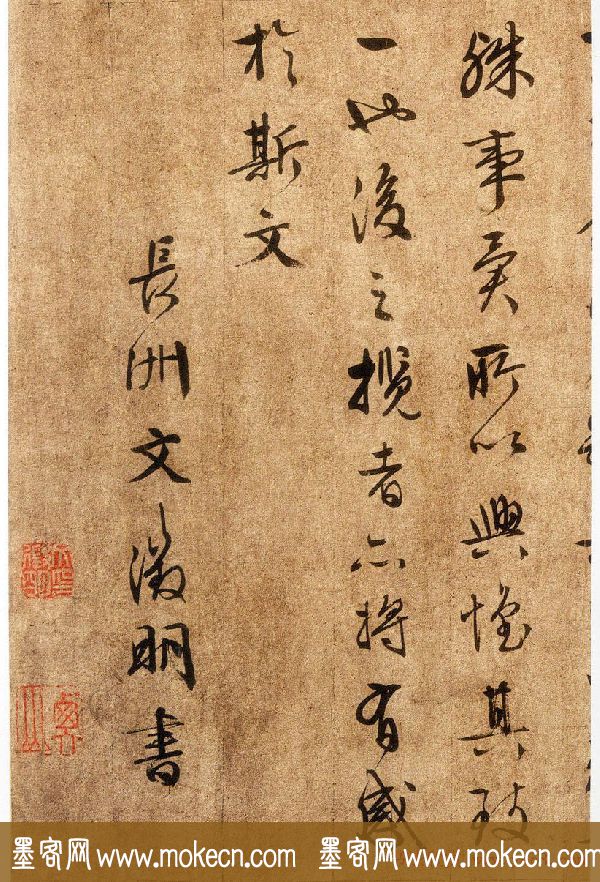 殊事異所以興懷其致
一也後之攬者亦將有感
於斯文
長洲文徵明書
墨客网 www.mokecn.com 墨客网 www.mokecn.com